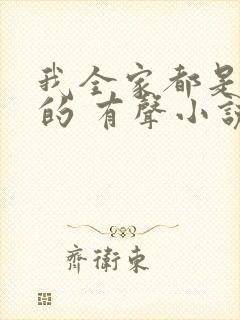 我全家都是
的 有聲小說
齊衛東